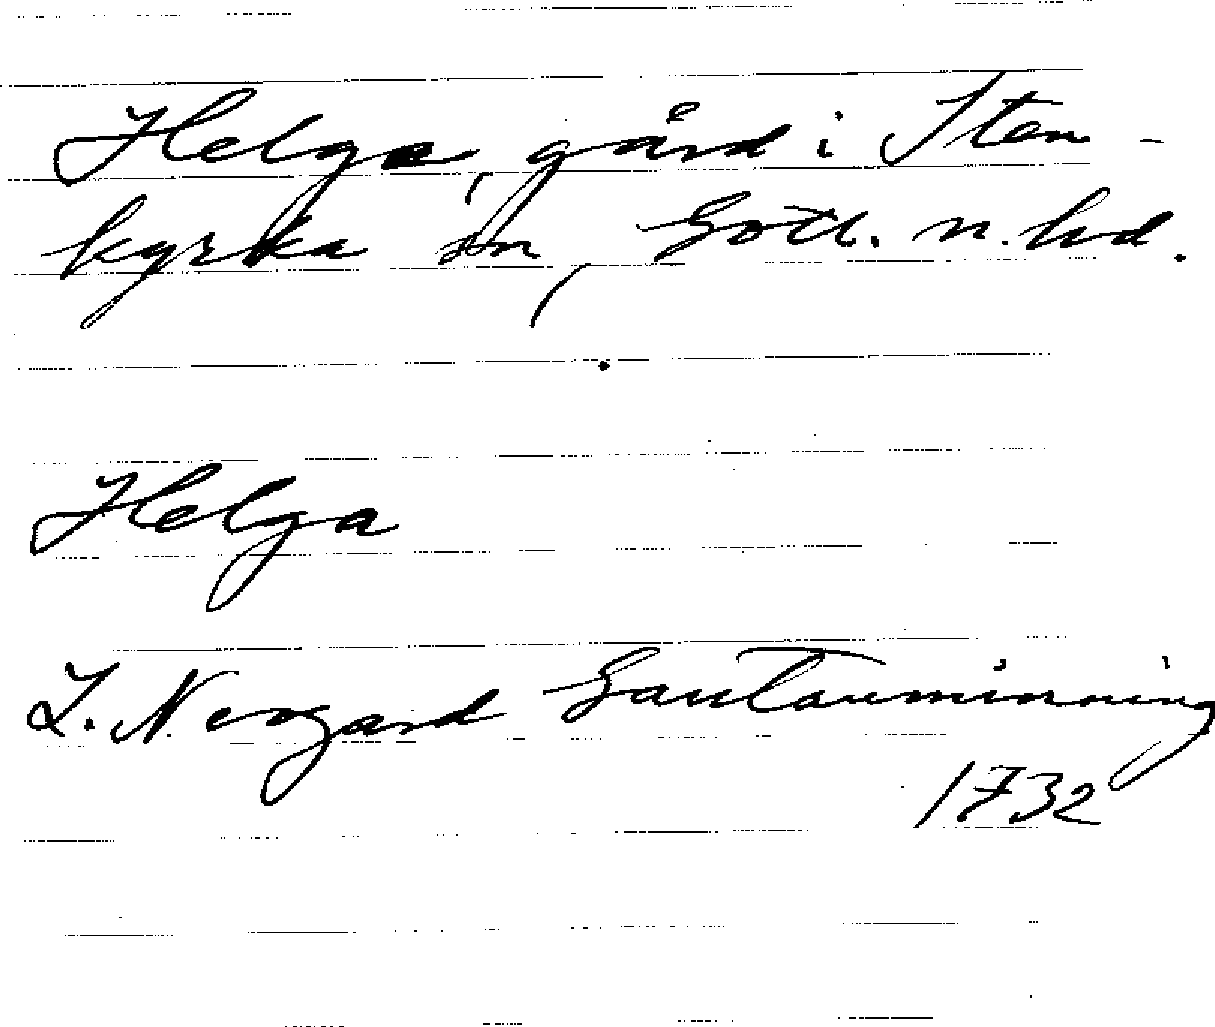 Helga, gård i Sten-
kyrka sn, Gotl. n. hd.
Helga
L. Neogard Gautauminning
1732